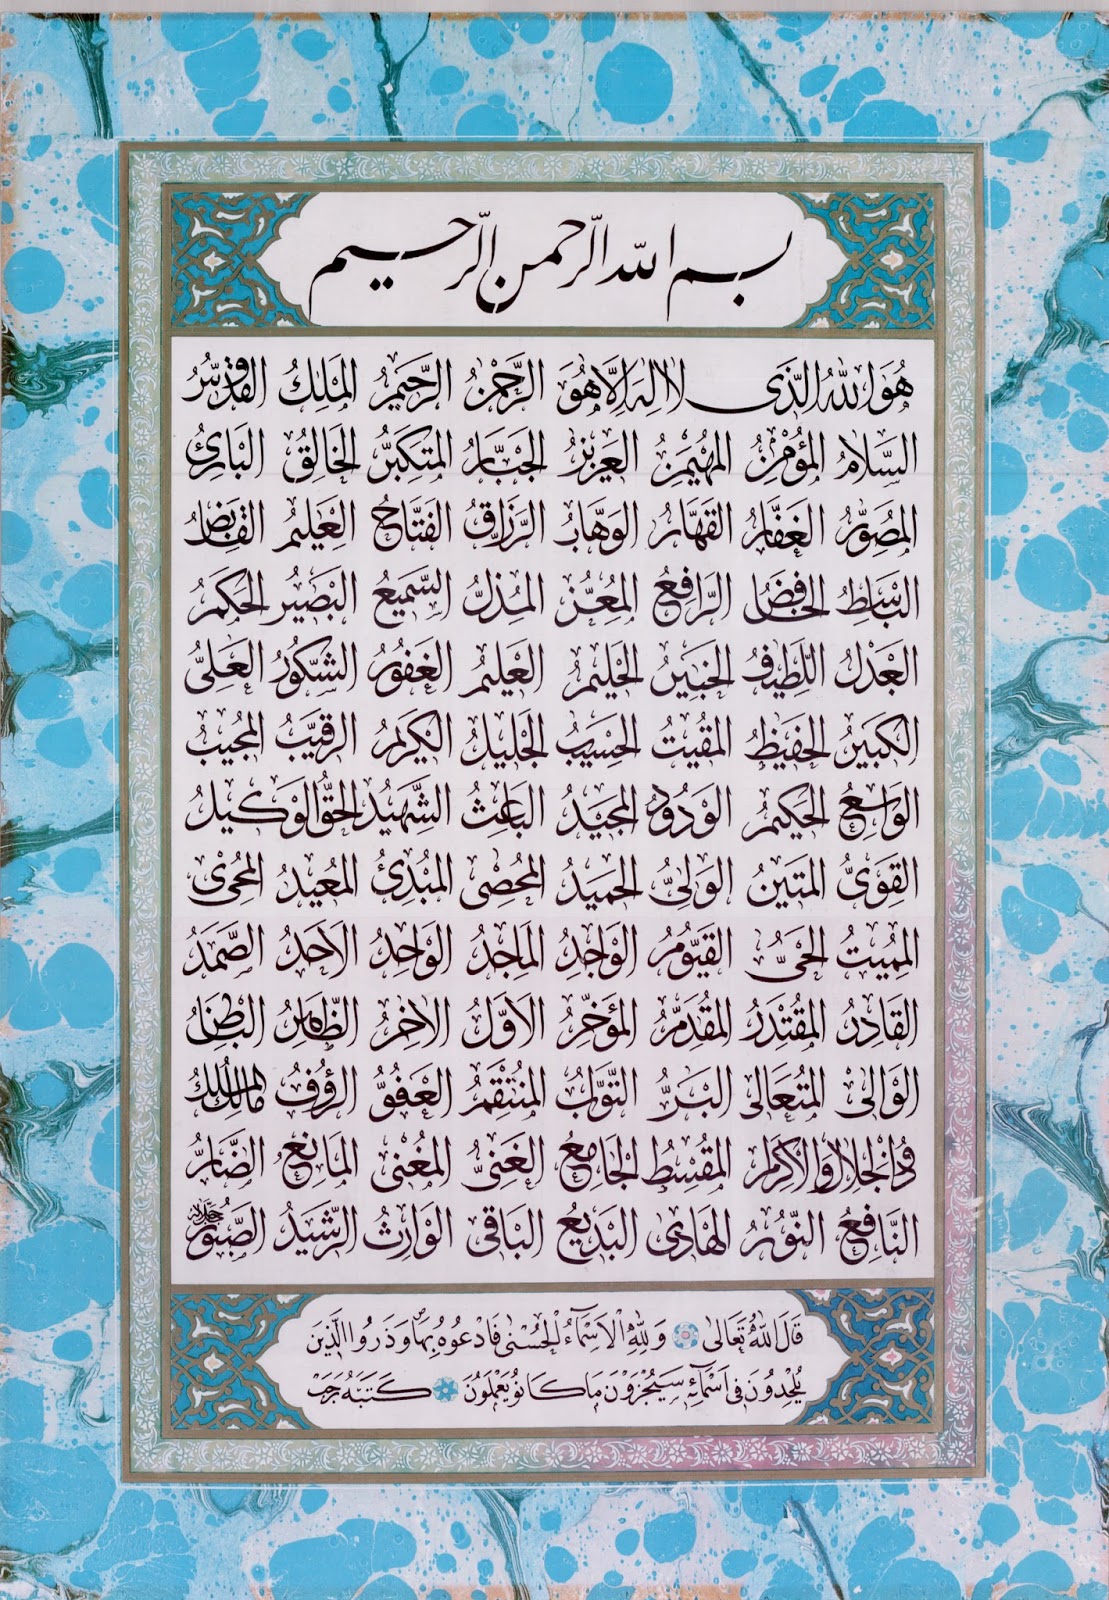 بسم الله الرحمن الرحيم
هُوَ اللهُ الَّذِى لَا اِلٰهَ اِلَّا هُوَ الرَّحْمٰنُ الرَّحِيمُ الْمَلِكُ الْقُدُّوسُ
السَّلَامُ الْمُؤْمِنُ الْمُهَيْمِنُ الْعَزِيزُ الْجَبَّارُ الْمُتَكَبِّرُ الْخَالِقُ الْبَارِئُ
الْمُصَوِّرُ الْغَفَّارُ الْقَهَّارُ الْوَهَّابُ الرَّزَّاقُ الْفَتَّاحُ الْعَلِيمُ الْقَابِضُ
الْبَاسِطُ الْخَافِضُ الرَّافِعُ الْمُعِزُّ الْمُذِلُّ السَّمِيعُ الْبَصِيرُ الْحَكَمُ
الْعَدْلُ اللَّطِيفُ الْخَبِيرُ الْحَلِيمُ الْعَظِيمُ الْغَفُورُ الشَّكُورُ الْعَلِىُّ
الْكَبِيرُ الْحَفِيظُ الْمُقِيتُ الْحَسِيبُ الْجَلِيلُ الْكَرِيمُ الرَّقِيبُ الْمُجِيبُ
الْوَاسِعُ الْحَكِيمُ الْوَدُودُ الْمَجِيدُ الْبَاعِثُ الشَّهِيدُ الْحَقُّ الْوَكِيلُ
الْقَوِىُّ الْمَتِينُ الْوَلِىُّ الْحَمِيدُ الْمُحْصِى الْمُبْدِئُ الْمُعِيدُ الْمُحْيِى
الْمُمِيتُ الْحَىُّ الْقَيُّومُ الْوَاجِدُ الْمَاجِدُ الْوَاحِدُ الْاَحَدُ الصَّمَدُ
الْقَادِرُ الْمُقْتَدِرُ الْمُقَدِّمُ الْمُؤَخِّرُ الْاَوَّلُ الْاٰخِرُ الظَّاهِرُ الْبَاطِنُ
الْوَالِى الْمُتَعَالِى الْبَرُّ التَّوَّابُ الْمُنْتَقِمُ الْعَفُوُّ الرَّؤُفُ مَالِكُ الْمُلْكِ
ذُو الْجَلَالِ وَالْاِكْرَامِ الْمُقْسِطُ الْجَامِعُ الْغَنِىُّ الْمُغْنِى الْمَانِعُ الضَّارُّ
النَّافِعُ النُّورُ الْهَادِى الْبَدِيعُ الْبَاقِى الْوَارِثُ الرَّشِيدُ الصَّبُورُ
قَالَ اللهُ تَعَالٰى وَلِلّٰهِ الْاَسْمَاءُ الْحُسْنٰى فَادْعُوهُ بِهَا وَذَرُوا الَّذِينَ
يُلْحِدُونَ فِى اَسْمَائِهِ سَيُجْزَوْنَ مَا كَانُوا يَعْمَلُونَ كَتَبَهُ